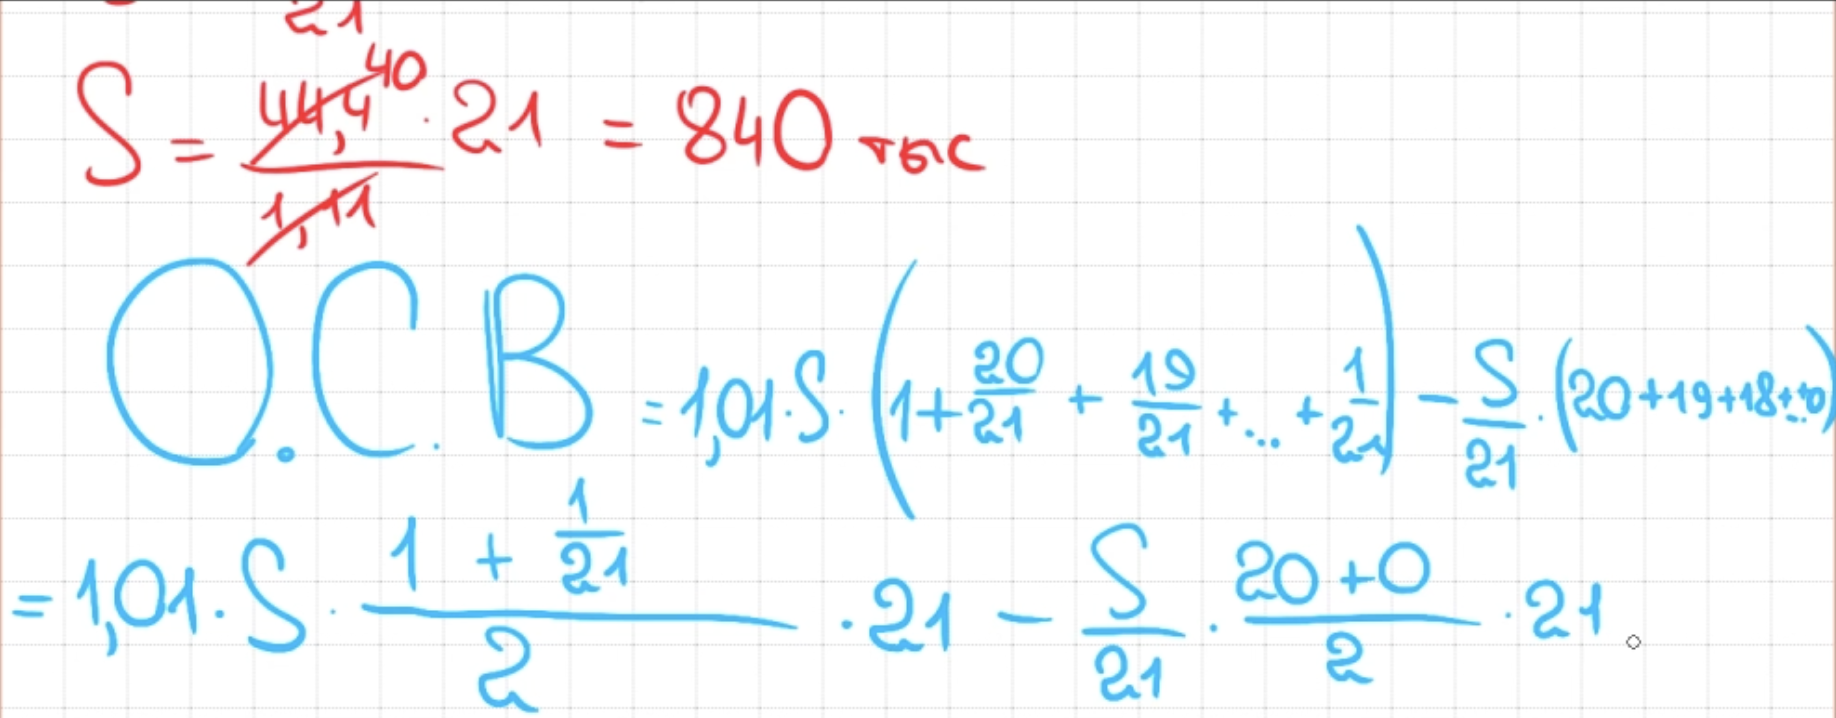 21
S = 44,4/1,11 40 · 21 = 840 тыс
О.С.В = 1,01·S·(1 + 20/21 + 19/21 + ... + 1/21) − S/21 · (20+19+18+..+0)
= 1,01·S· (1 + 1/21)/2 · 21 − S/21 · (20+0)/2 · 21